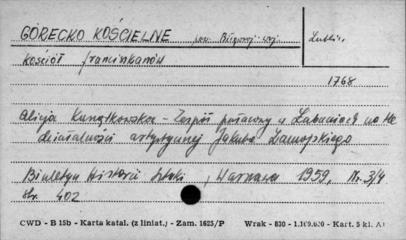 GÓRECKO KOŚCIELNE pow. Biłgoraj woj. Lublin
kościół franciszkanów
1768
Alicja Kunątkowska - Zespół pałacowy w Łabuniach na tle
działalności artystycznej Jakuba Zamojskiego
Biuletyn Historii Sztuki, Warszawa 1959, Nr. 3/4
str. 402
CWD - B 15b - Karta katal. (z liniat.) - Zam. 1625/P Wrak - 830 - 1.109.000 - Kart. 5 kl. A1